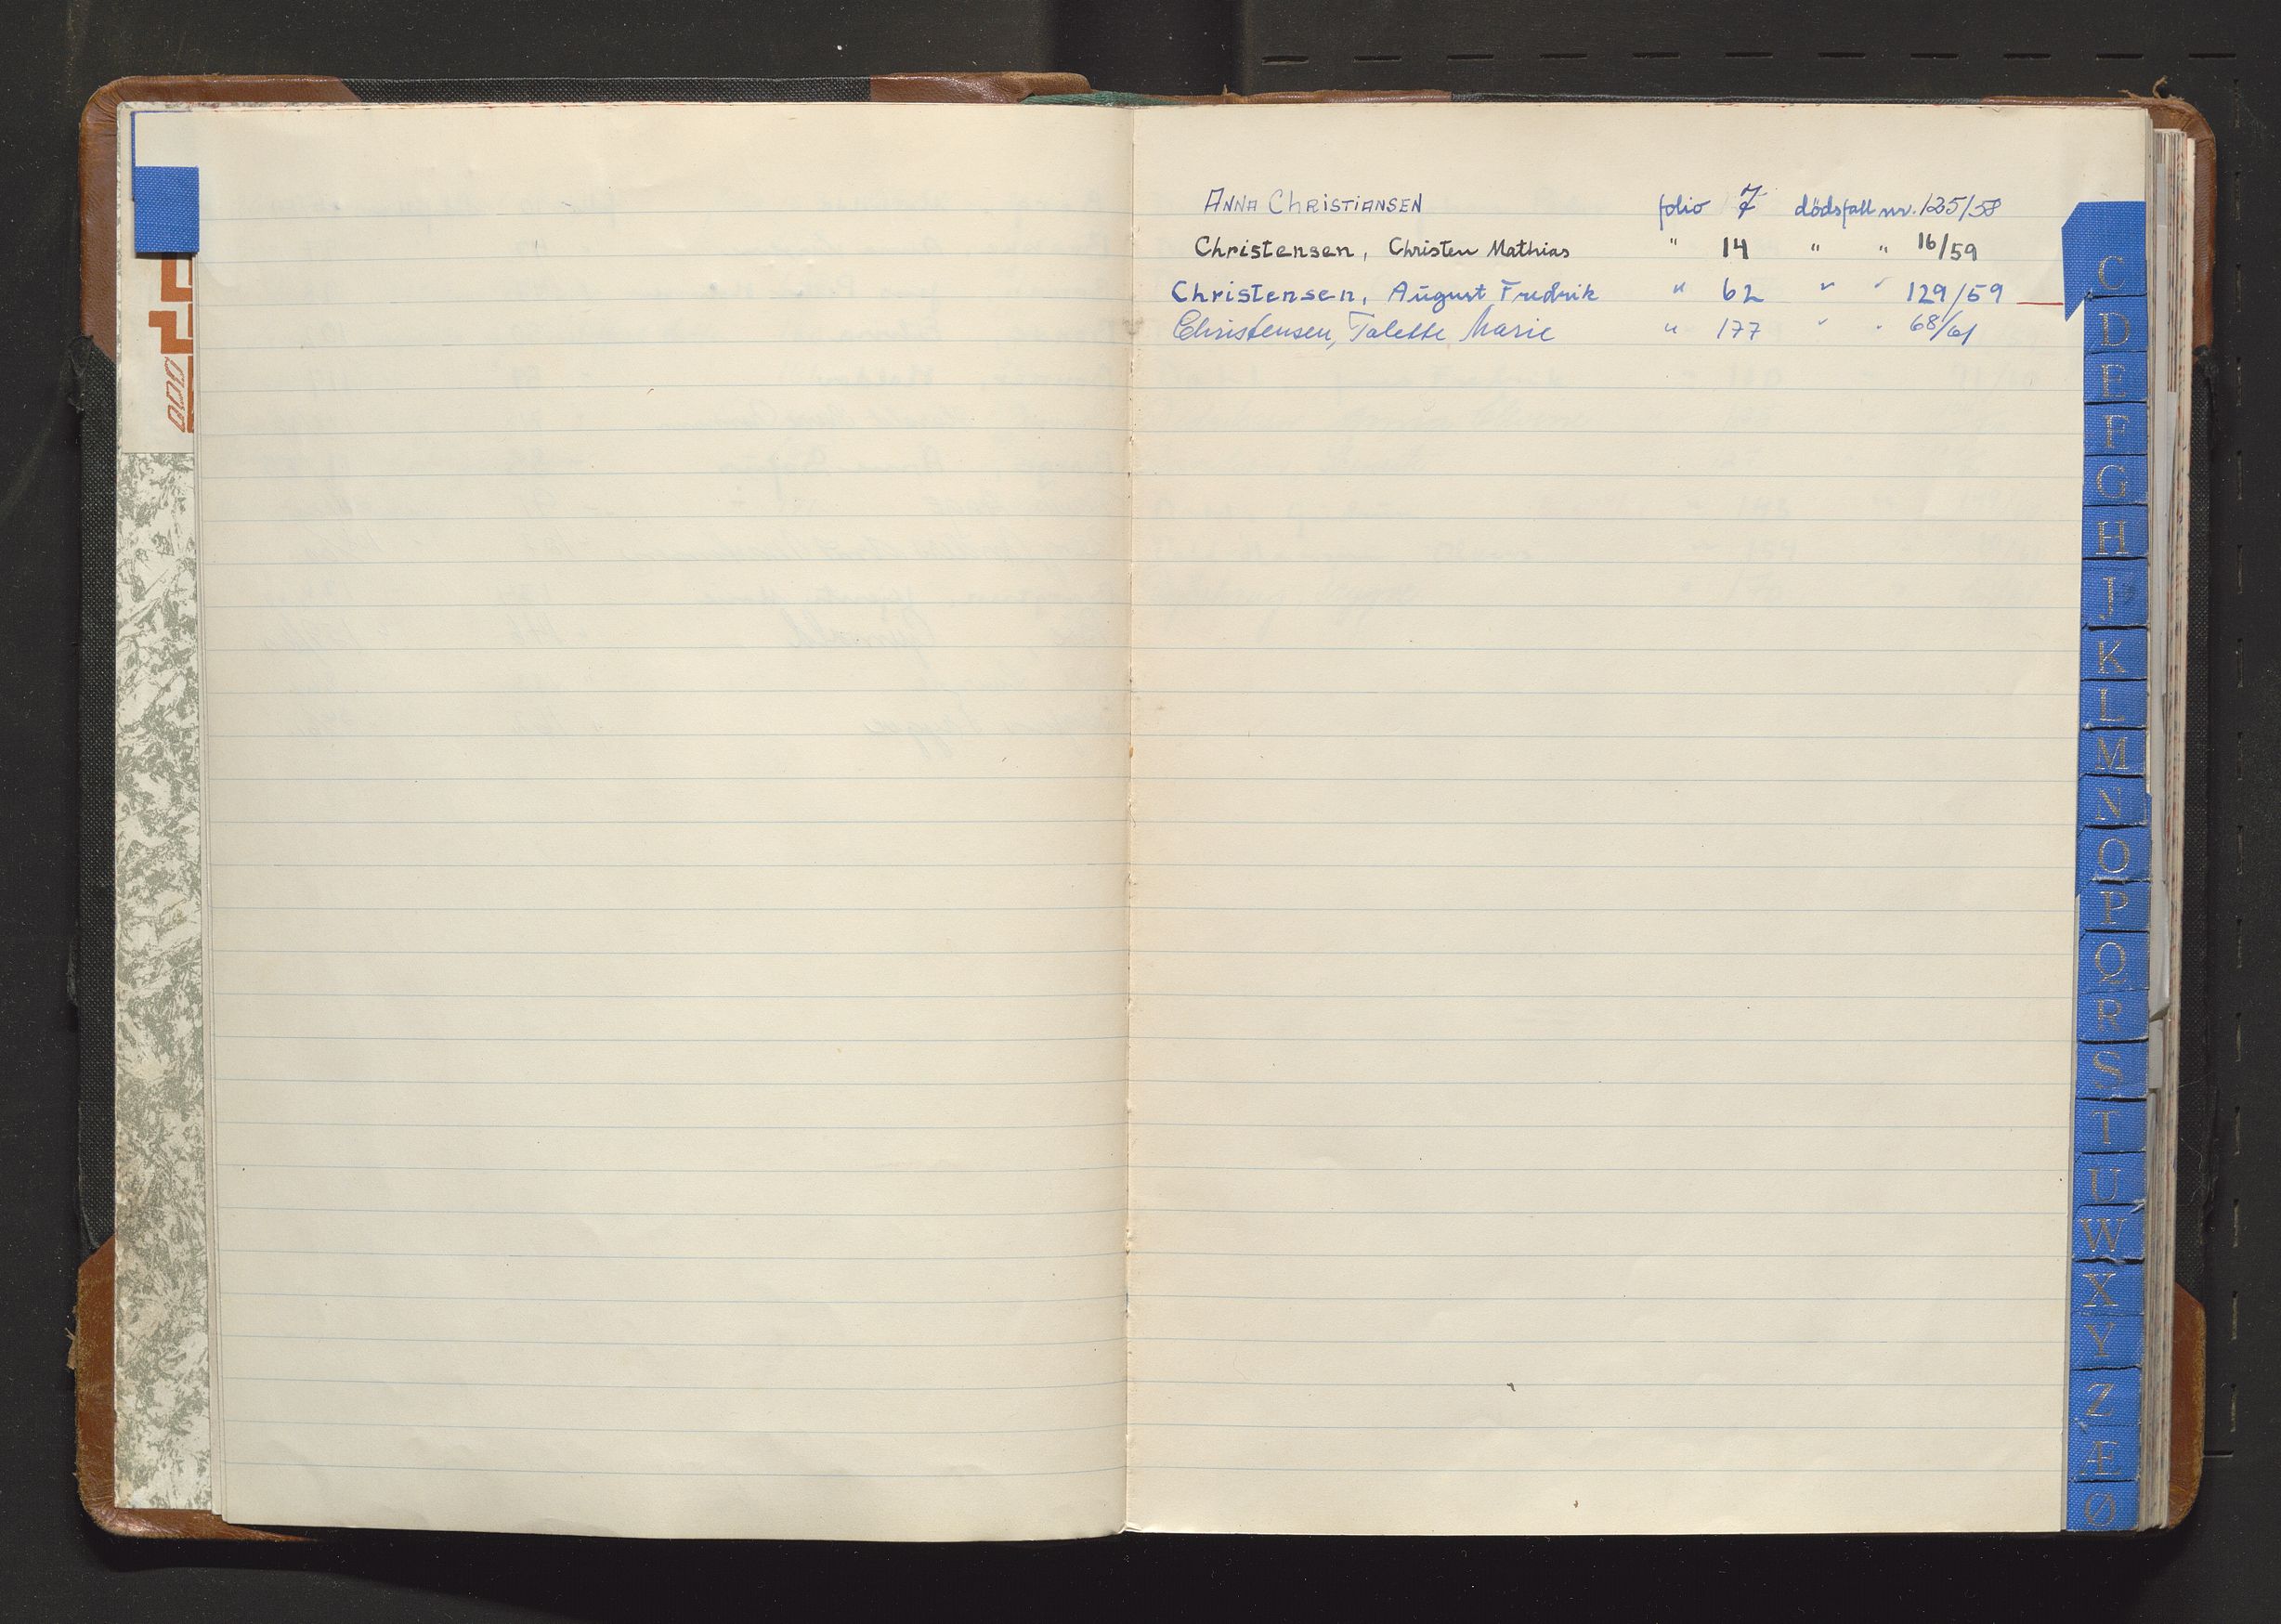 ANNA CHRISTIANSEN folio 7 dödsfall nr. 125/58
Christensen, Christen Mathias " 14 " " 16/59
Christensen, August Fredrik " 62 " " 129/59
Christensen, Talette Marie " 177 " " 68/61
C
D
E
F
G
H
J
K
L
M
N
O
P
Q
R
S
T
U
W
X
Y
Z
Æ
Ø